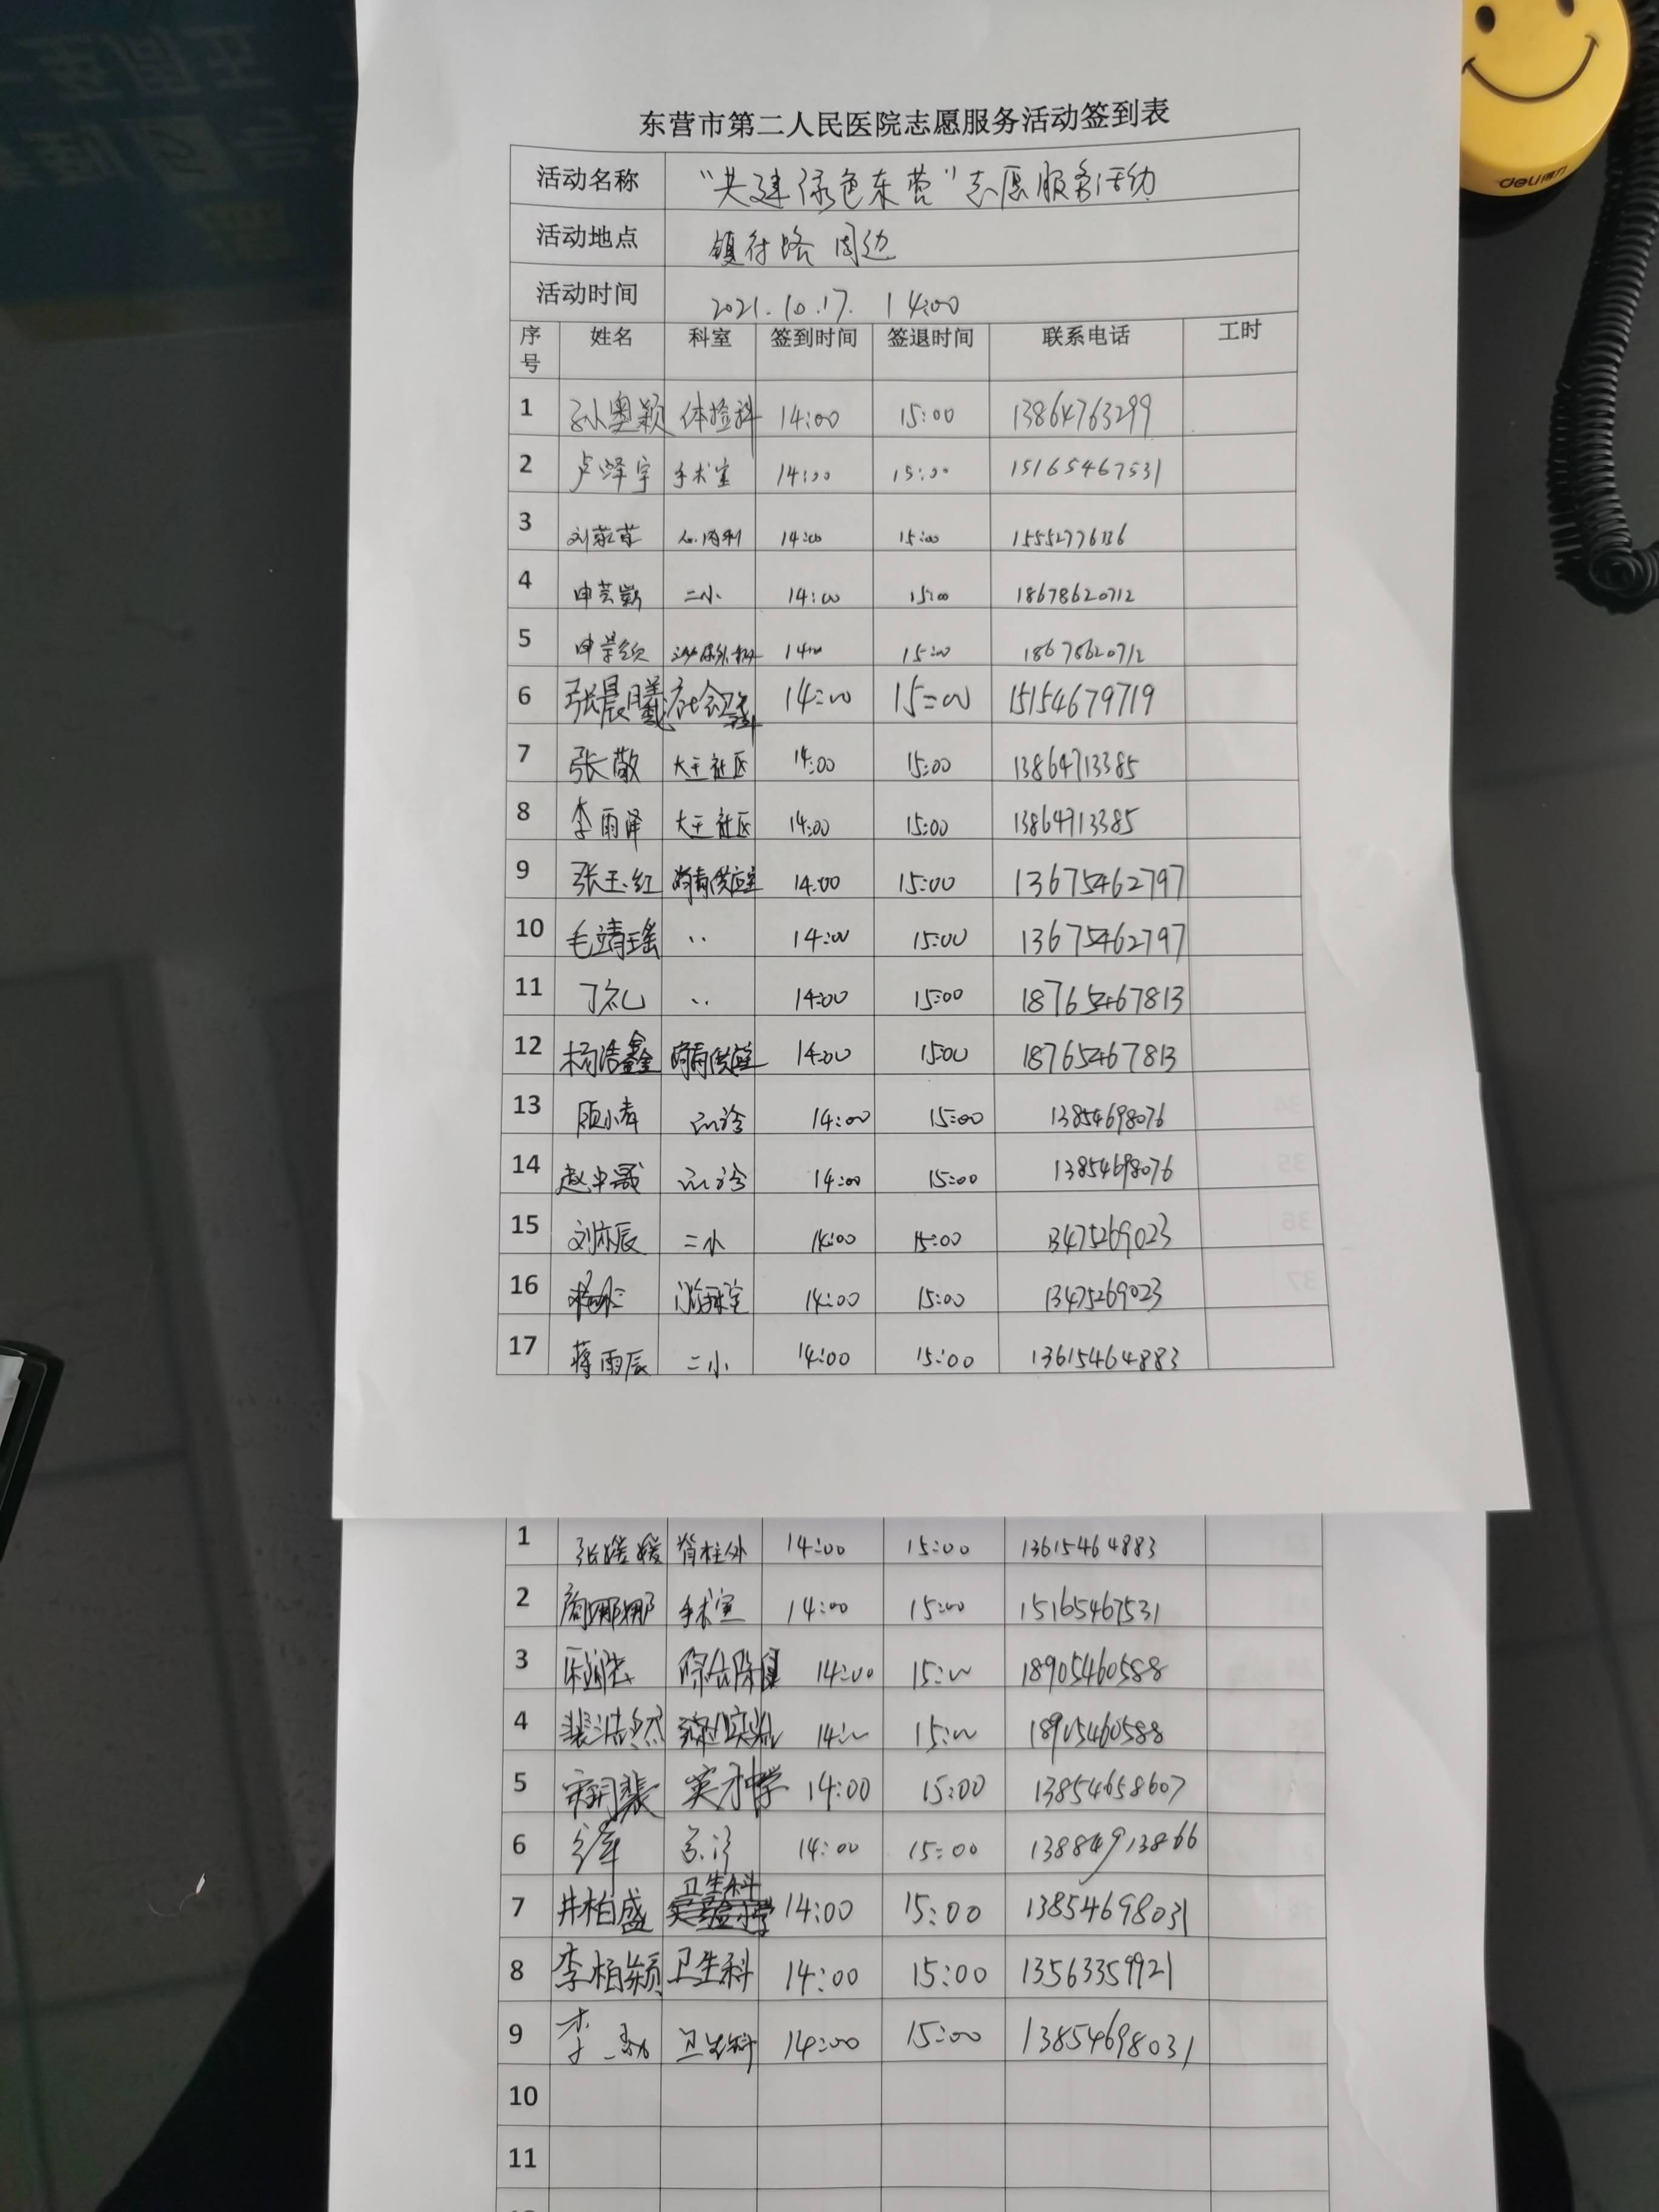 东营市第二人民医院志愿服务活动签到表
活动名称 “共建绿色东营”志愿服务活动
活动地点 镇府路周边
活动时间 2021.10.17. 14:00
序号 姓名 科室 签到时间 签退时间 联系电话 工时
1 孙奥颖 体检科 14:00 15:00 13864763299
2 卢泽宇 手术室 14:00 15:00 15165467531
3 心内科 14:00 15:00
4 二小 14:00 15:00 18678620712
5 14:00 15:00 18678620712
6 张晨曦 14:00 15:00 15154679719
7 张敬 大王社区 14:00 15:00 13864713385
8 李雨泽 大王社区 14:00 15:00 13864713385
9 张玉红 消毒供应室 14:00 15:00 13675462797
10 毛靖瑶 〃 14:00 15:00 13675462797
11 丁礼 〃 14:00 15:00 18765467813
12 杨浩鑫 消毒供应室 14:00 15:00 18765467813
13 14:00 15:00 13854698076
14 14:00 15:00 13854698076
15 刘亦辰 二小 14:00 15:00 13475269023
16 14:00 15:00 13475269023
17 蒋雨辰 二小 14:00 15:00 13615464883
1 张媛媛 脊柱外 14:00 15:00 13615464883
2 手术室 14:00 15:00 15165467531
3 14:00 15:00 18905460588
4 裴浩然 14:00 15:00 18905460588
5 英才中学 14:00 15:00 13854658607
6 14:00 15:00
卫生科
7 井柏盛 14:00 15:00 13854698031
8 李柏颖 卫生科 14:00 15:00 13563359921
9 卫生科 14:00 15:00 13854698031
10
11
deli得力